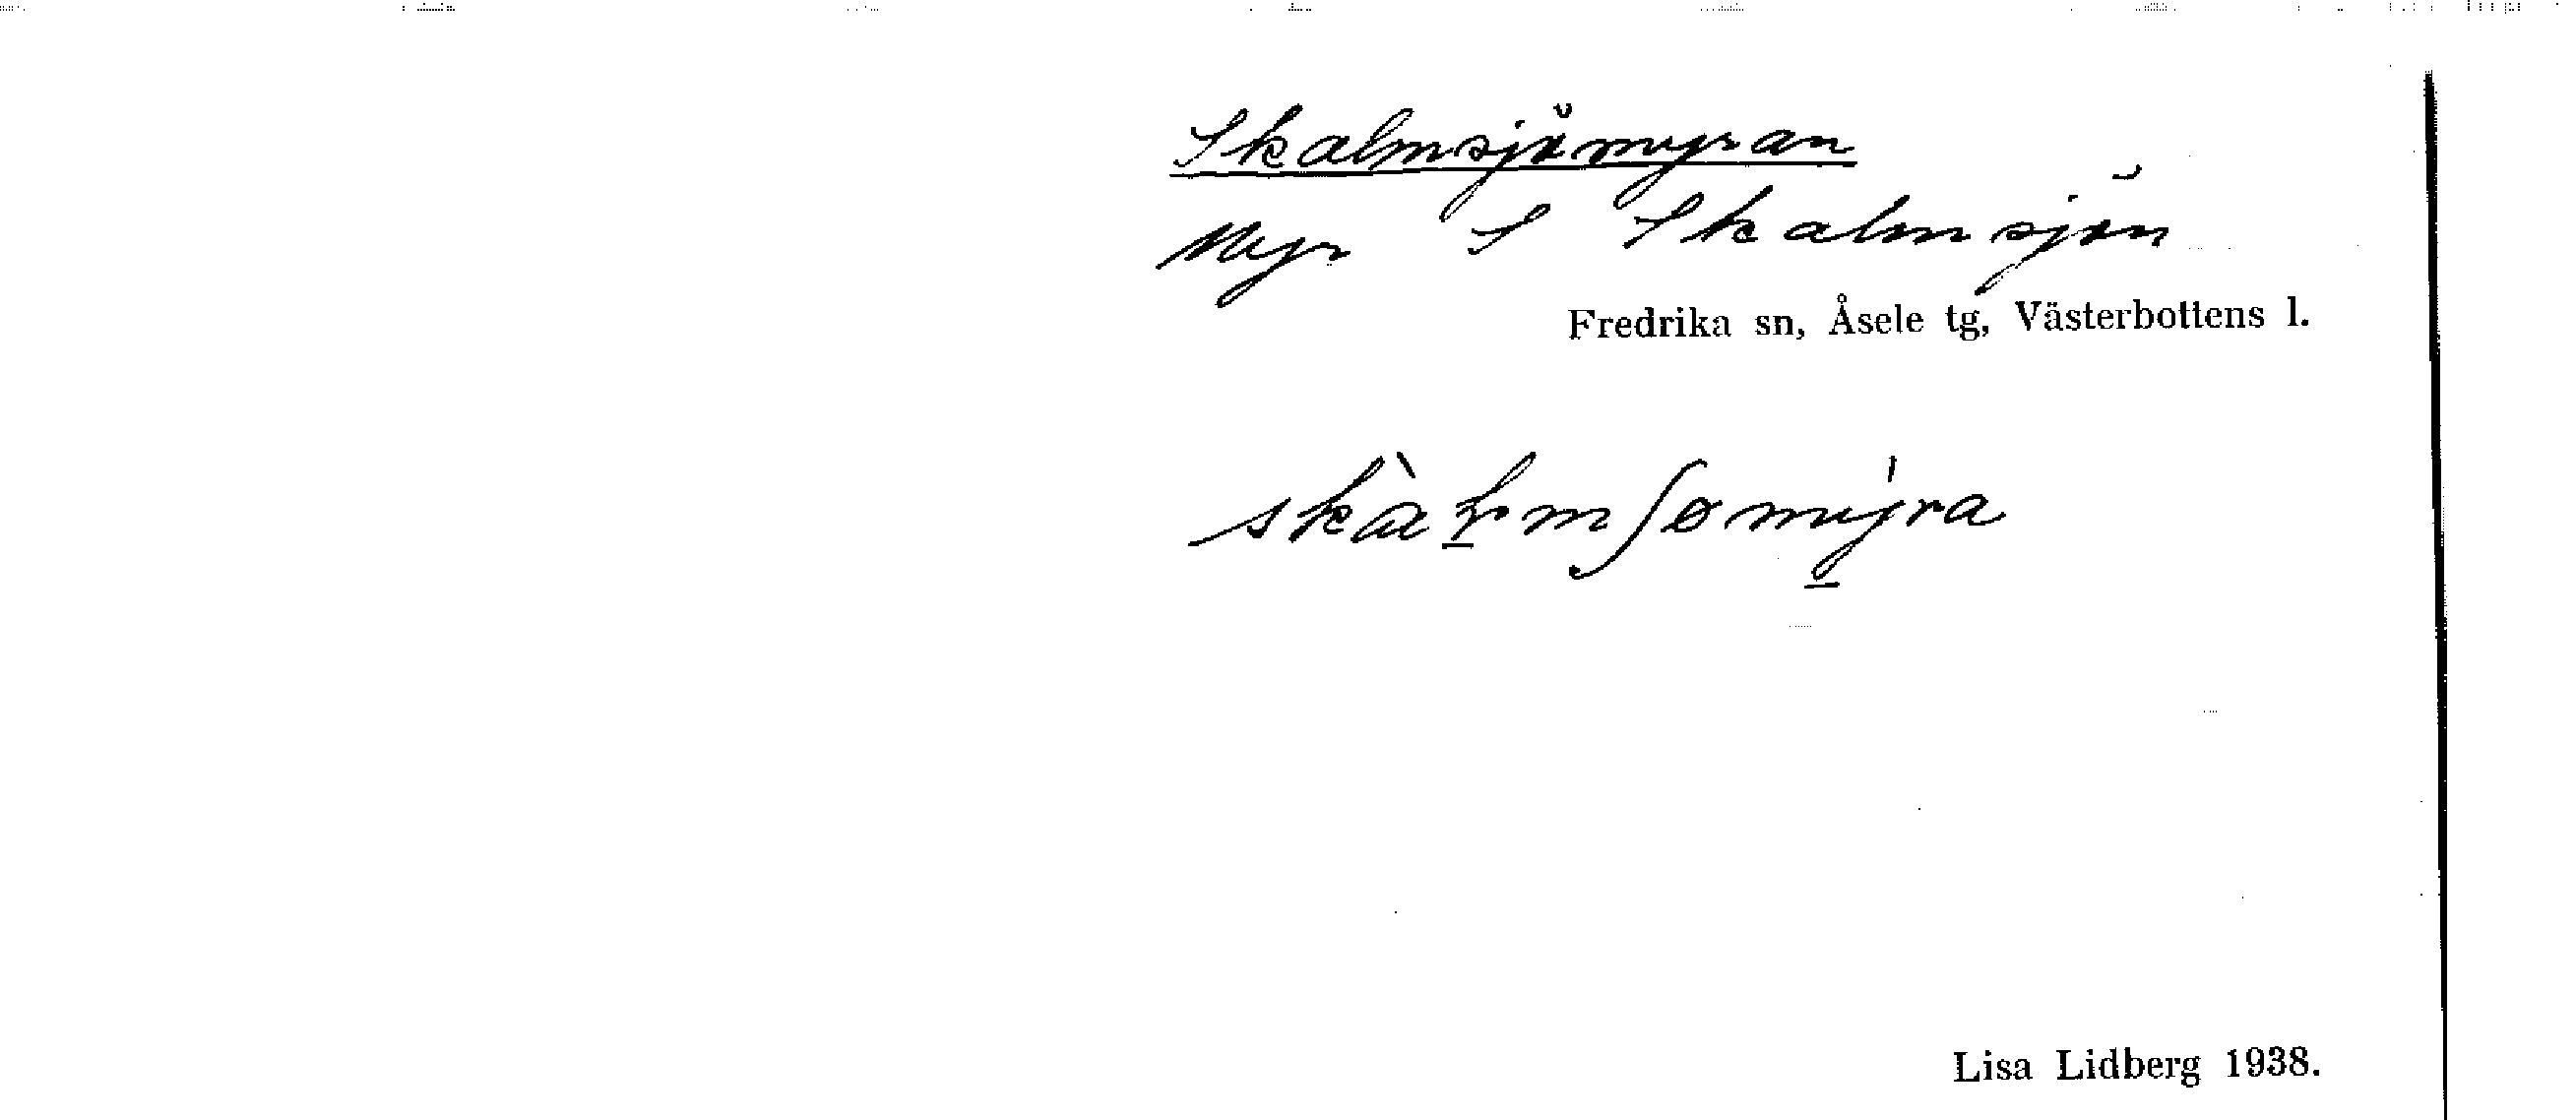 Skalmsjömyran
Myr S Skalmsjön
Fredrika sn, Åsele tg, Västerbottens l.
Lisa Lidberg 1938.